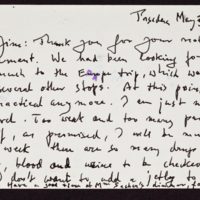 Tuesday May 3
Jim: Thank you for your not
ment. We had been looking for
much to the Europe trip, which wo
several other stops. At this poin
practical any more. I am just n
ed. Too weak and too many pe
f, as promised, I will be mu
week there are so many drugs
, blood and urine to be checked
don't want to add a jetly to
Have a good time at Mrs Sacher's dinner, fo